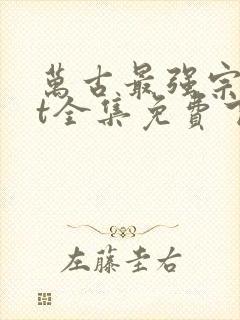 萬古最强宗
t全集免費
左藤圭右